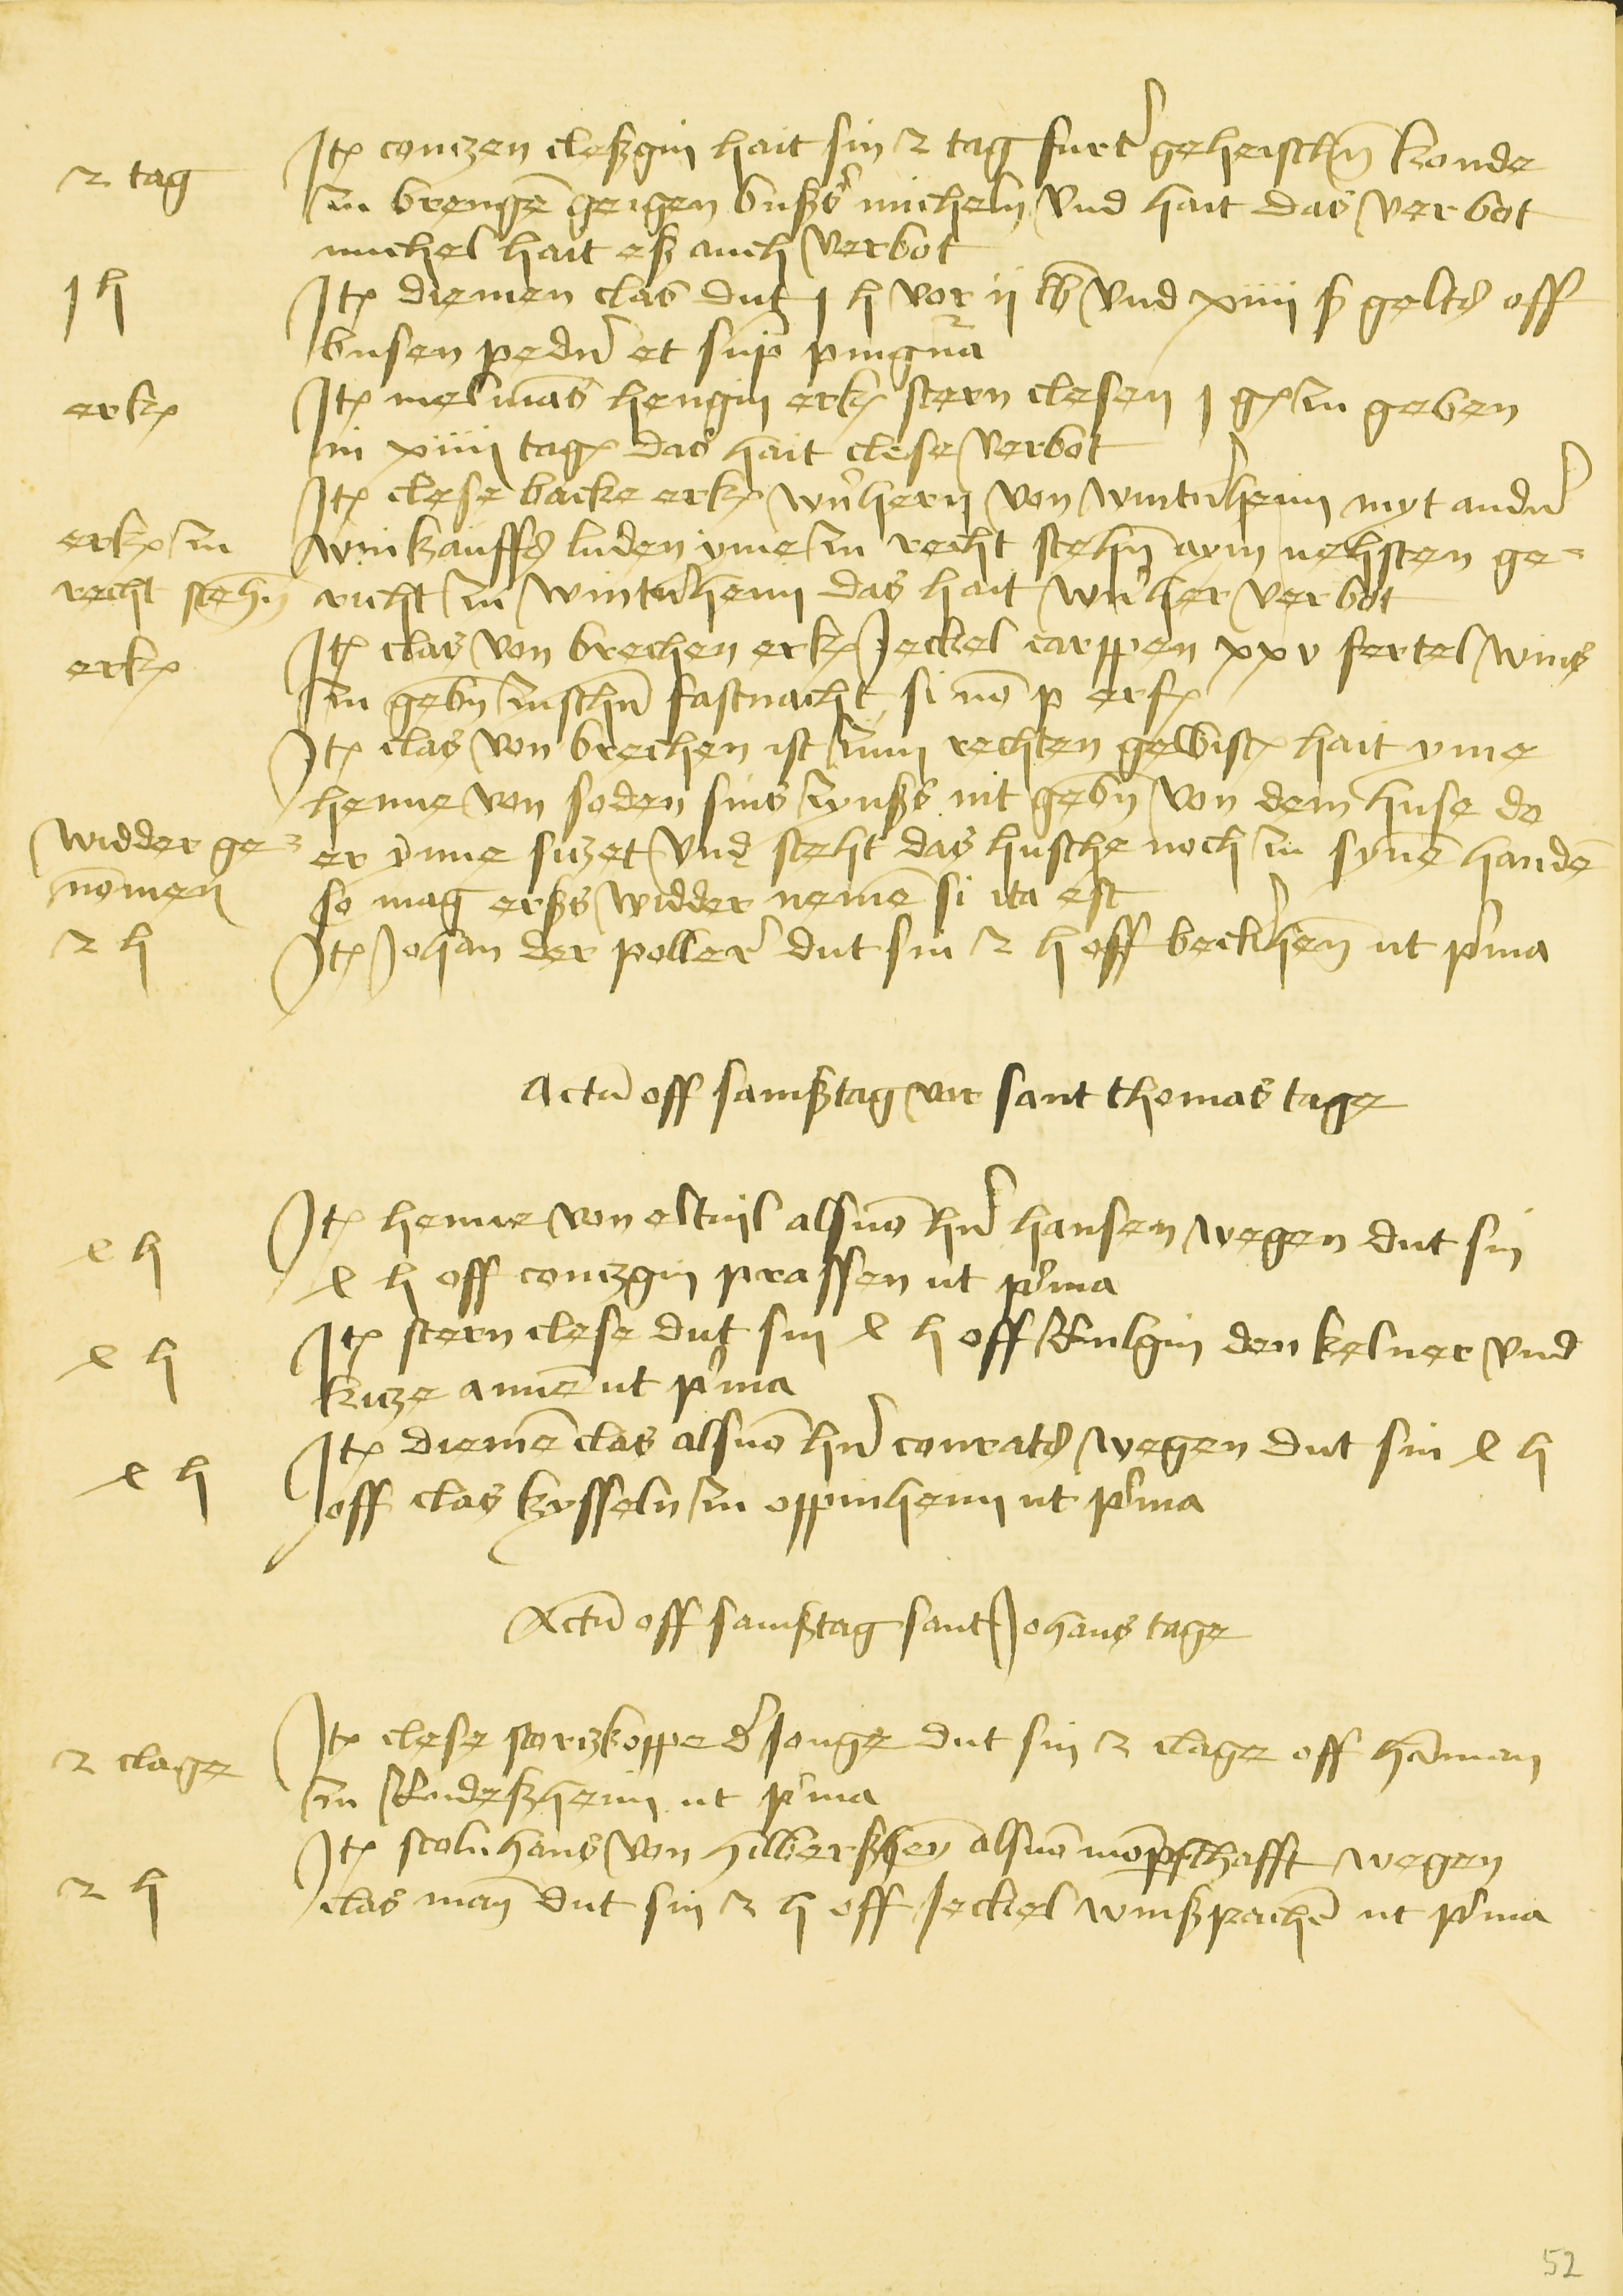 2 tag
Itē conczen cleßgin hait sin 2 tag furt' geheischn̄ konde
zu brengē geigen bußs' micheln vnd hait das verbot
michel hait eß auch verbot
j h
Itē diemen clas dut j h vor ij lb vnd xiiij ß gelts off
busen pedn' et sup pingn̄a
erkē
Itē melmās hengin erkē stern clesen j gē zu geben
in xiiij tagē das hait clese verbot
Itē clese backe erkē wn'hern von wint'nheim myt andn'
erkē zu
winkauffs luden yme zu recht stehn̄ aym nehsten ge=
recht stehn̄
richt zu wint'nheim das hait wn'her verbot
erkē
Itē clas von brechen erkē Jeckel carppen xxv fertel wins
zu gebn̄ zuschn̄ fastnacht si nō p erfē
Itē clas von brechen ist zum rechten gewistē hait yme
henne von soden sins zinßs nit gebn̄ von dem huse do
widder ge=
er ynne siczet vnd steht das husche noch zu synē handē
nōmen
so mag erßs widder nemē si ita est
2 h
Itē Johan der poller' dut sin 2 h off beckn'hen̄ ut p'ma
Actū off samßtag vor sant thomas tage
Itē henne von eltuil als vō hn' hansen wegen dut sin
e h
e h off conczgin prassen ut p'ma
e h
Itē stern clese dut sin e h off Rulgin den kelner vnd
kicze annē ut p'ma
e h
Itē diemē clas als vō hn' conrats wegen dut sin e h
off clas kysseln zu oppinheim ut p'ma
Actū off samßtag sant Johans tage
2 clage
Itē clese storczkoppe d' jonge dut sin 2 clage off hāman
zu Rudeßheim ut p'ma
Itē scoln hans von hilberßhen̄ als vō mōpschafft wegen
2 h
clas man̄ dut sin 2 h off Jeckel winßpachē ut p'ma
52